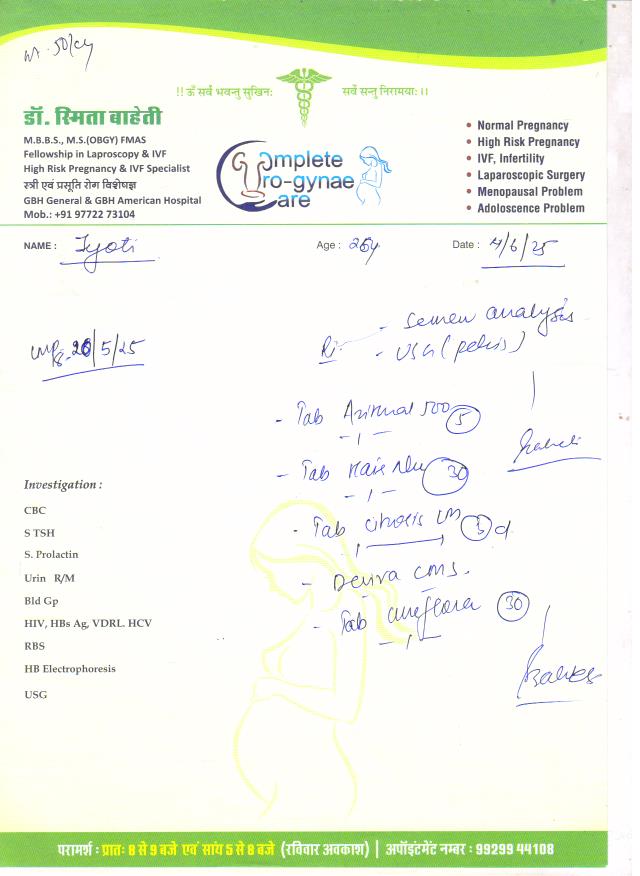 wt. 50kg
!! ॐ सर्व भवन्तु सुखिन: सर्वे सन्तु निरामयाः ।।
डॉ. स्मिता बाहेती
M.B.B.S., M.S.(OBGY) FMAS
Fellowship in Laproscopy & IVF
High Risk Pregnancy & IVF Specialist
स्त्री एवं प्रसूति रोग विशेषज्ञ
GBH General & GBH American Hospital
Mob.: +91 97722 73104
Complete
Uro-gynae
Care
• Normal Pregnancy
• High Risk Pregnancy
• IVF, Infertility
• Laparoscopic Surgery
• Menopausal Problem
• Adoloscence Problem
NAME : Jyoti Age : 26y Date : 4/6/25
LMP 20/5/25
- Semen analysis
Rx - USG (pelvis)
- Tab 500 5
- Tab 30
- Tab 5 d
- CMS.
- Tab 30
Investigation :
CBC
S TSH
S. Prolactin
Urin R/M
Bld Gp
HIV, HBs Ag, VDRL. HCV
RBS
HB Electrophoresis
USG
परामर्श : प्रातः 8 से 9 बजे एवं सांय 5 से 8 बजे (रविवार अवकाश) | अपॉइंटमेंट नम्बर : 99299 44108